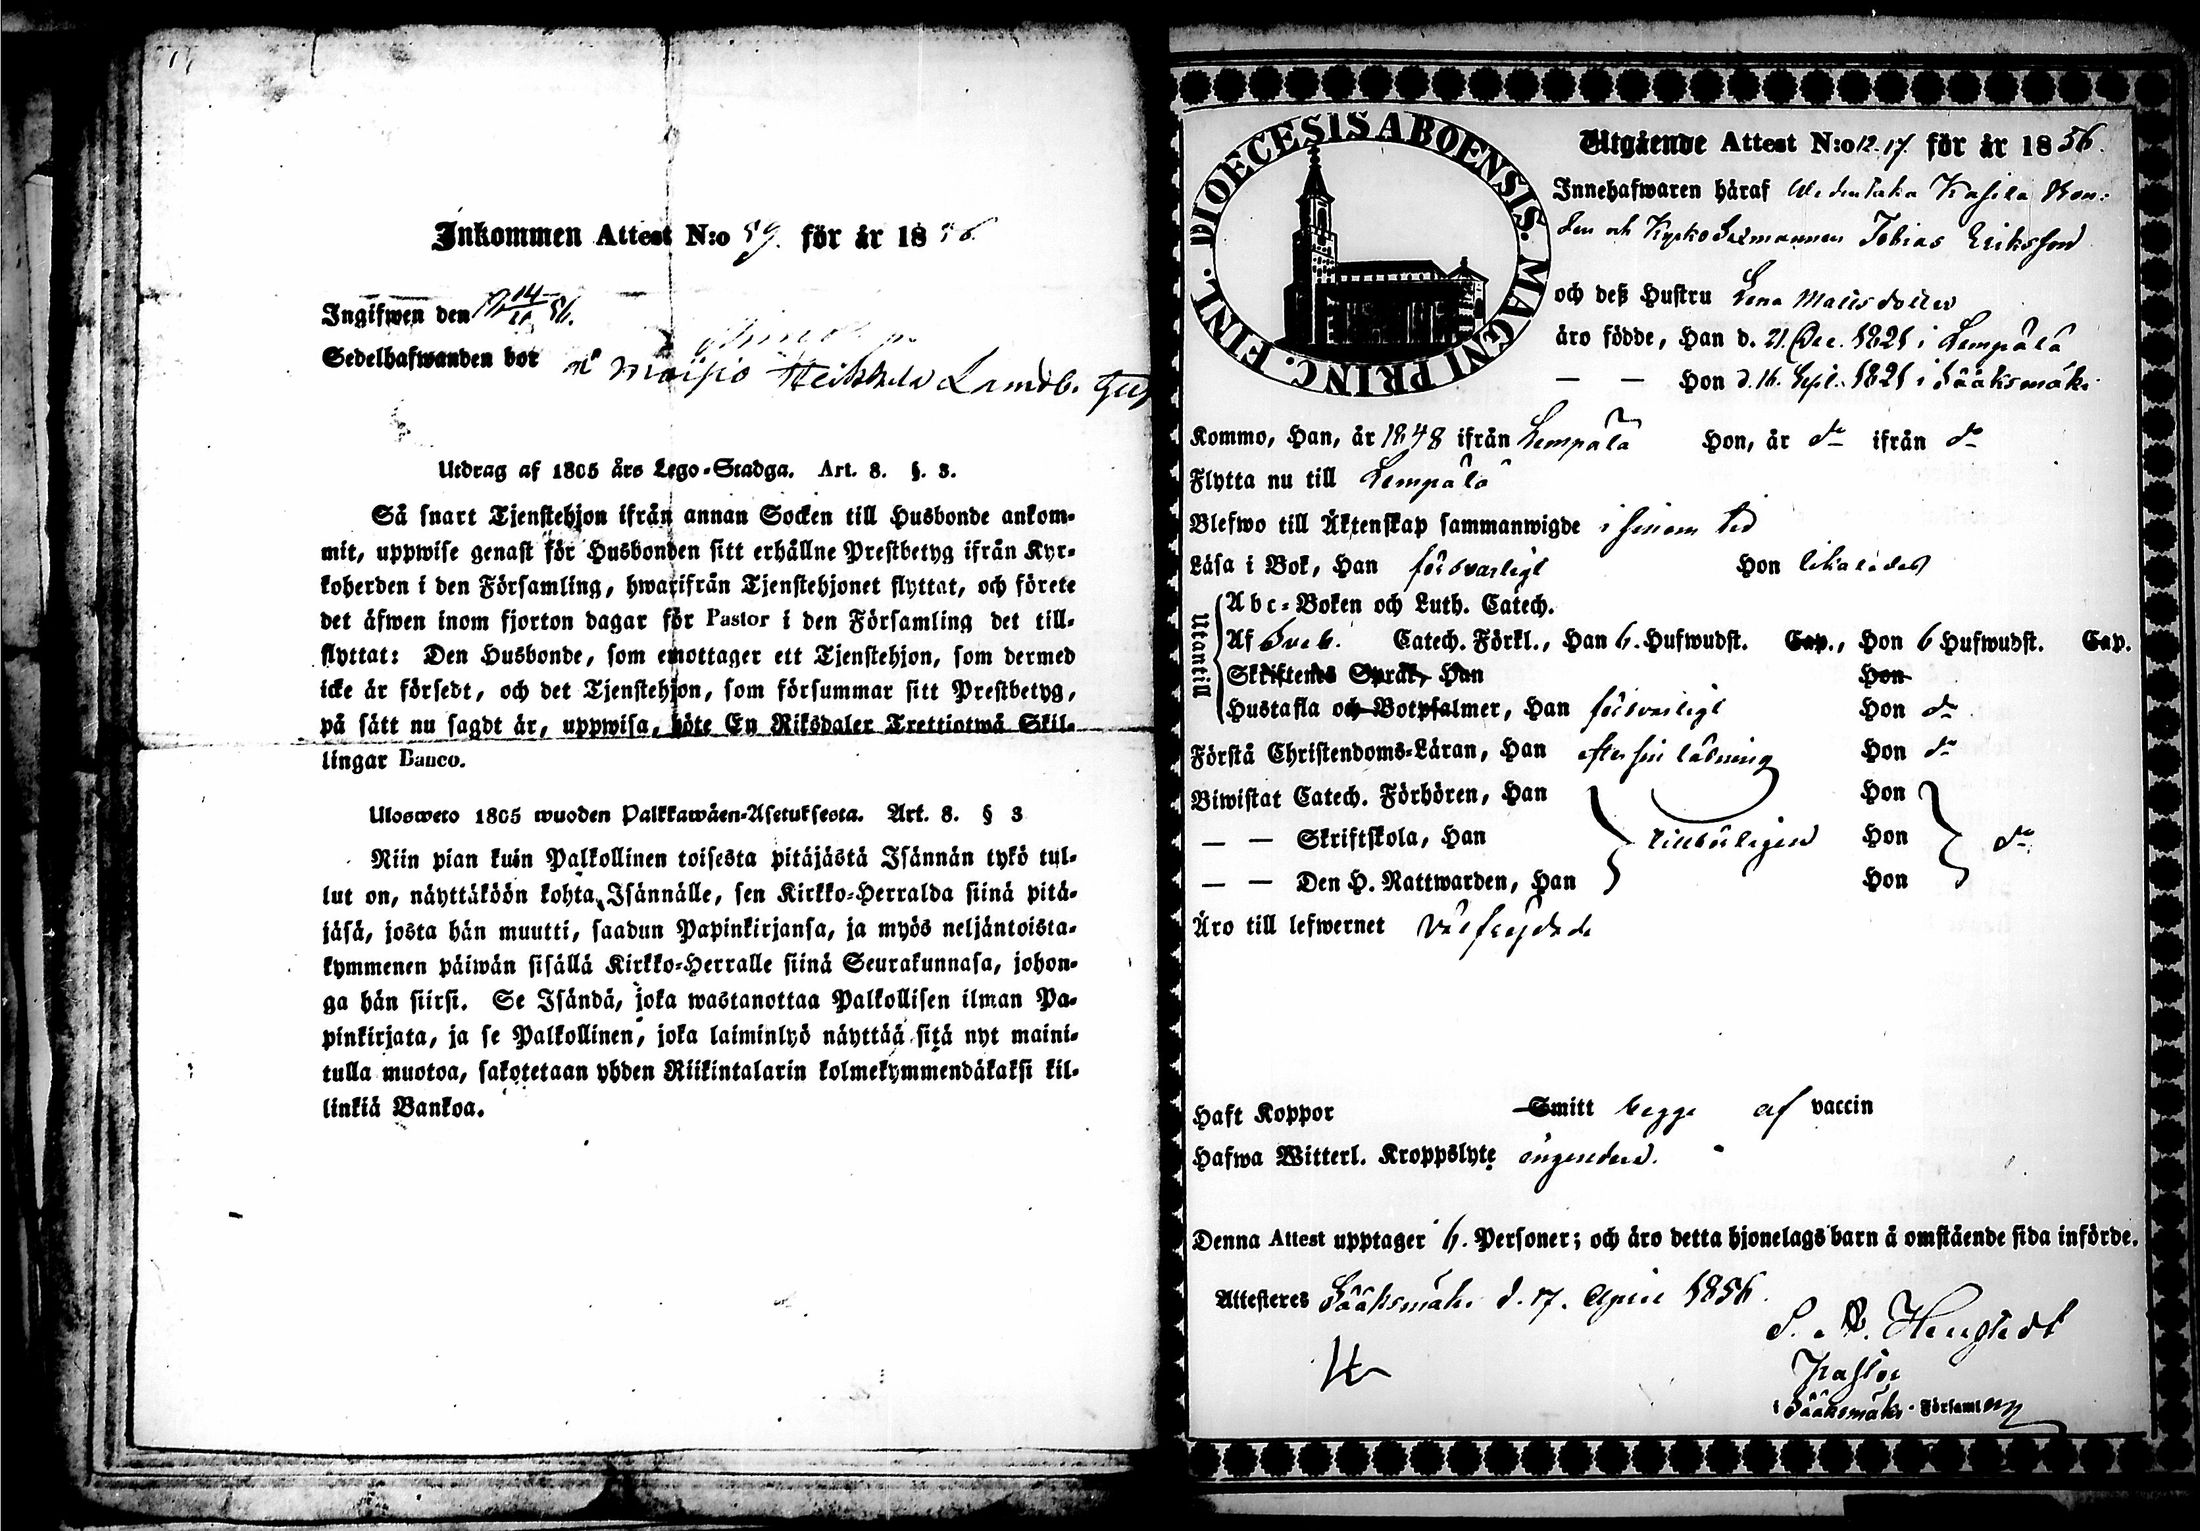 Inkommen Attest N:o 59. för år 1856
Ingifwen den 14 56.
Sedelhafwanden bor Moisio Heikkilä Landb.
Utdrag af 1805 års Lego-Stadga. Art. 8. §. 3.
Så snart Tjenstehjon ifrån annan Socken till Husbonde ankom-
mit, uppwise genast för Husbonden sitt erhållne Prestbetyg ifrån Kyr-
koherden i den Församling, hwarifrån Tjenstehjonet flyttat, och förete
det äfwen inom fjorton dagar för Pastor i den Församling det till-
flyttat: Den Husbonde, som emottager ett Tjenstehjon, som dermed
icke är försedt, och det Tjenstehjon, som försummar sitt Prestbetyg,
på sätt nu sagdt är, uppwisa, böte En Riksdaler Trettiotwå Skil-
lingar Banco.
Ulosweto 1805 wuoden Palkkawäen-Asetuksesta. Art. 8. § 3
Niin pian kuin Palkollinen toisesta pitäjästä Isännän tykö tul-
lut on, näyttäköön kohta Isännälle, sen Kirkko-Herralda siinä pitä-
jäsä, josta hän muutti, saadun Papinkirjansa, ja myös neljäntoista-
kymmenen päiwän sisällä Kirkko-Herralle siinä Seurakunnasa, johon-
ga hän siirsi. Se Isändä, joka wastanottaa Palkollisen ilman Pa-
pinkirjata, ja se Palkollinen, joka laiminlyö näyttää sitä nyt maini-
tulla muotoa, sakotetaan yhden Riikintalarin kolmekymmendäkaksi kil-
linkiä Bankoa.
DIOECESIS ABOENSIS. MAGNI PRINC. FINL.
Utgående Attest N:o 12.17. för år 1856.
Innehafwaren häraf Wedentaka Kasila Bon-
den och Kyrko Sexmannen Tobias Eriksson
och deß Hustru Lena Mattsdotter
äro födde, Han d. 21. Dec. 1821 i Lempälä
— — Hon d. 16. Sept. 1821 i Sääksmäki
Kommo, Han, år 1848 ifrån Lempälä Hon, år do ifrån do
Flytta nu till Lempälä
Blefwo till Äktenskap sammanwigde i sinom tid
Läsa i Bok, Han försvarligt Hon likaledes
Utantill
Abc-Boken och Luth. Catech.
Af Sveb. Catech. Förkl., Han 6. Hufwudst. Cap., Hon 6 Hufwudst. Cap.
Skriftenes Språk, Han Hon
Hustafla och Botpsalmer, Han försvarligt Hon do
Förstå Christendoms-Läran, Han efter sin läsning Hon do
Biwistat Catech. Förhören, Han Hon
— — Skriftskola, Han tillbörligen Hon do
— — Den H. Nattwarden, Han Hon
Äro till lefwernet välfrejdade
Haft Koppor Smitt begge af vaccin
Hafwa Witterl. Kroppslyte ingendera.
Denna Attest upptager 6. Personer; och äro detta hjonelags barn å omstående sida införde.
Attesteres Sääksmäki d. 17. April 1856.
Pastor
i Sääksmäki Församling